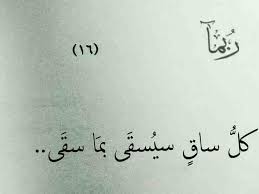 ربما
(١٦)
كلُّ ساقٍ سيُسقَى بمَا سقَى..